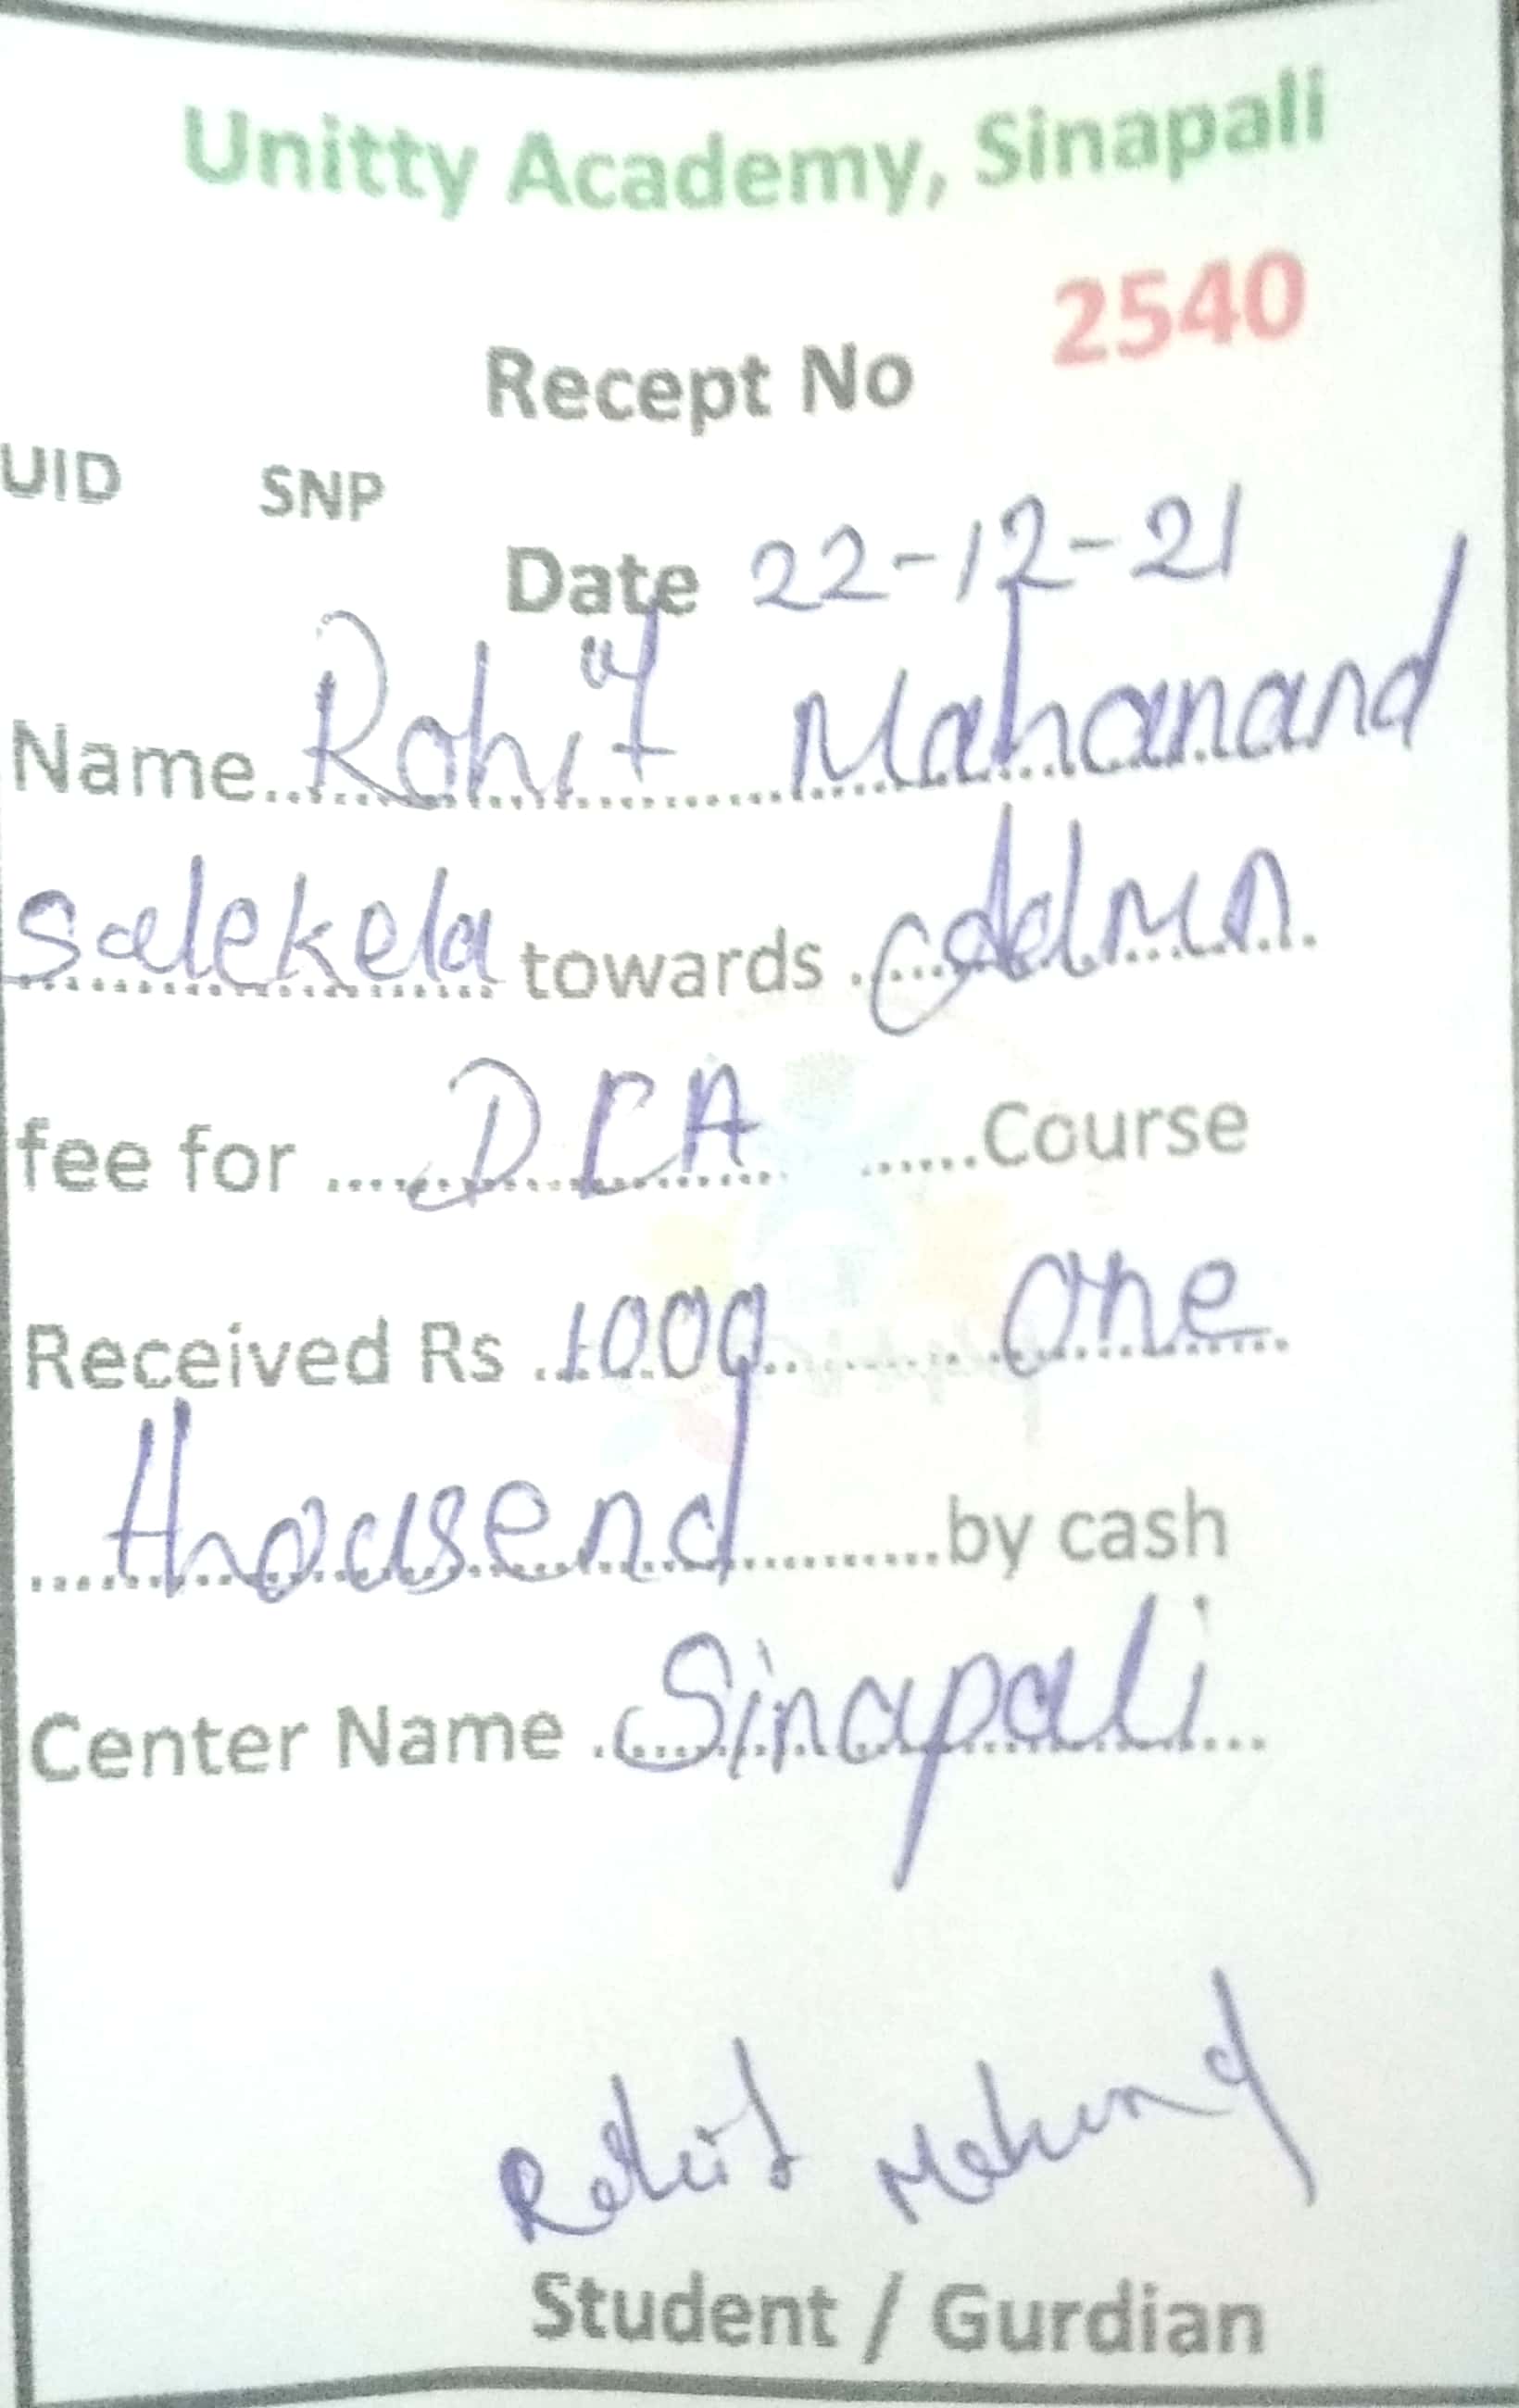 Unitty Academy, Sinapali
2540
Recept No
UID SNP
Date 22-12-21
Name Rohit Mahanand
Salekela towards Admn
fee for DCA Course
Received Rs 1000 One
thousend by cash
Center Name Sinapali
Rohit Mahanand
Student / Gurdian